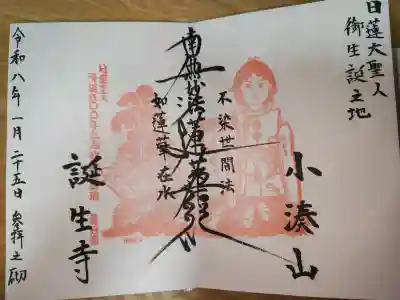 日蓮大聖人
御生誕之地
小湊山
不染世間法
南無妙法蓮華経
如蓮華在水
誕生寺
令和八年一月二十五日 参拝之砌